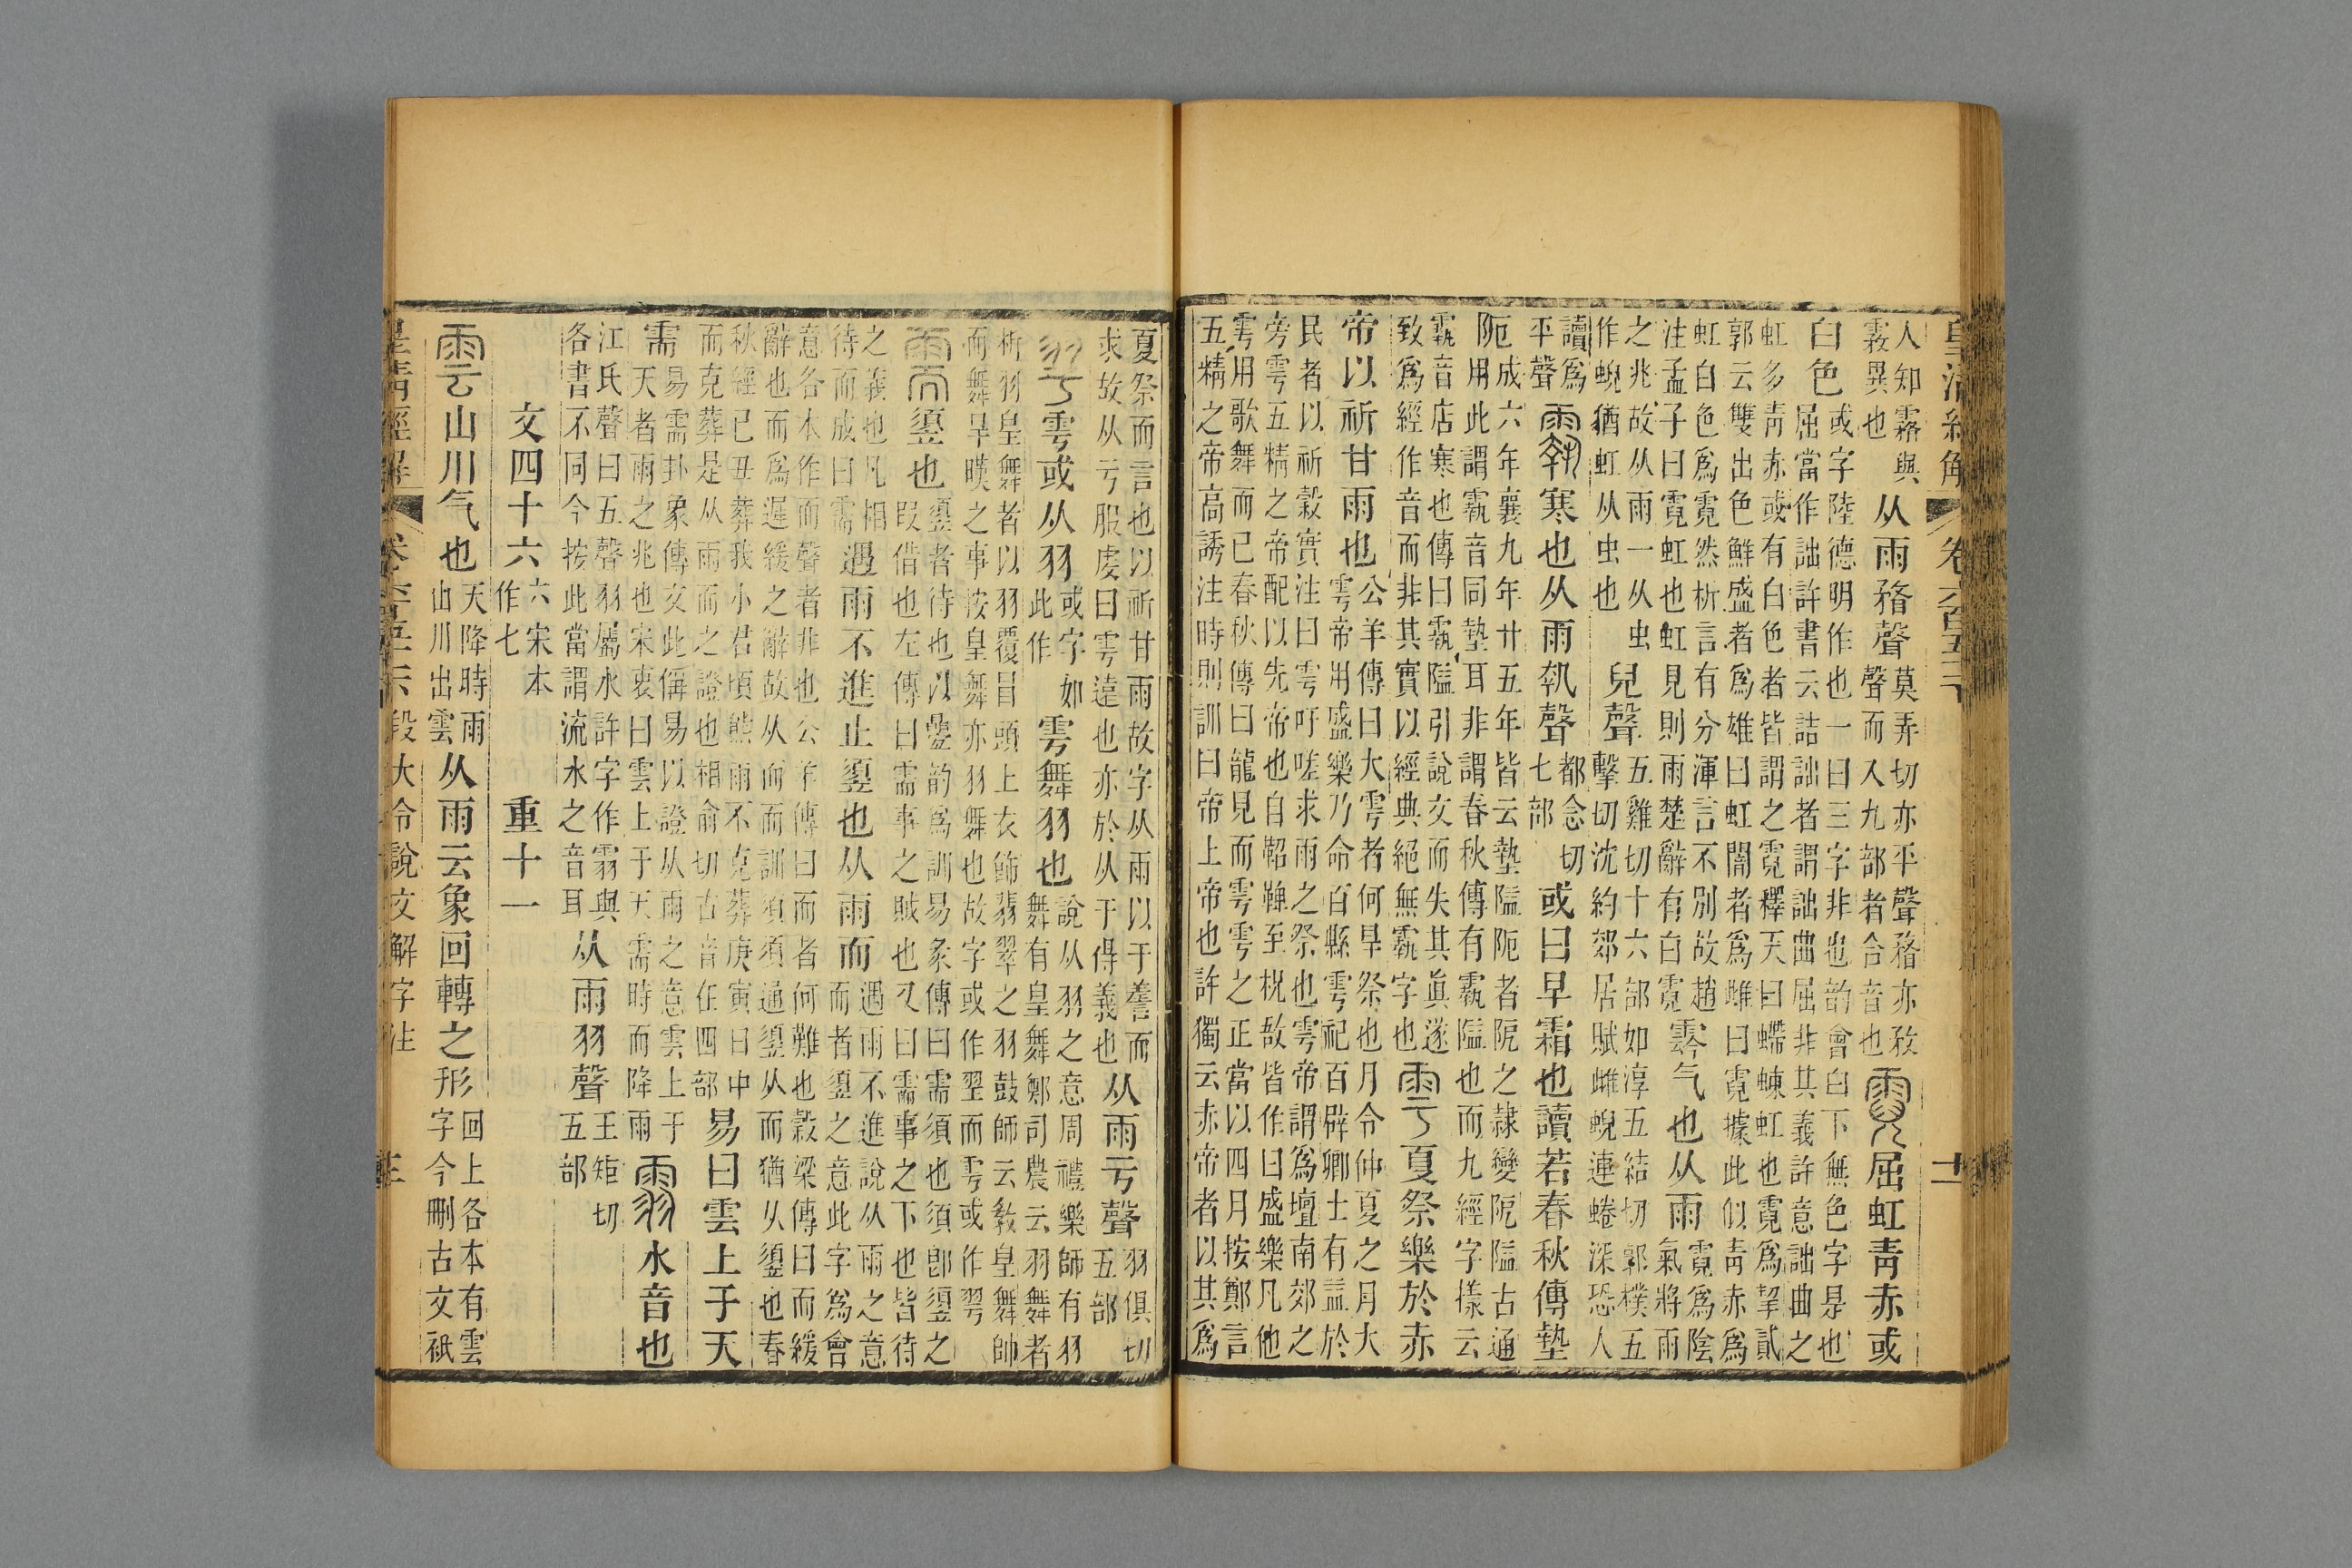 皇清經解 卷六百五十
人知霧與霚異也从雨瞀聲莫弄切亦平聲瞀亦敄聲而入九部者合音也霓屈虹青赤或
白色或字陸德明作也一曰三字非也韵會白下無色字是也屈當作詘許書云詰詘者謂詘曲屈非其義許意詘曲之
虹多青赤或有白色者皆謂之霓釋天曰螮蝀虹也霓爲挈貳郭云雙出色鮮盛者爲雄曰虹闇者爲雌曰霓據此似青赤爲
虹白色爲霓然析言有分渾言不別故趙注孟子曰霓虹也虹見則雨楚辭有白霓霒气也从雨霓爲陰氣將雨
之兆故从雨一从虫作蜺猶虹从虫也兒聲五雞切十六部如淳五結切郭樸五擊切沈約郊居賦雌蜺連蜷深恐人
讀爲平聲䨴寒也从雨執聲都念切七部或曰早霜也讀若春秋傳墊
阨成六年襄九年廿五年皆云墊隘阨者阸之隷變阸隘古通用此謂䨴音同墊耳非謂春秋傳有䨴隘也而九經字樣云
䨴音店寒也傳曰䨴隘引說文而失其眞遂致爲經作音而非其實以經典絕無䨴字也雩夏祭樂於赤
帝以祈甘雨也公羊傳曰大雩者何旱祭也月令仲夏之月大雩帝用盛樂乃命百縣雩祀百辟卿士有益於
民者以祈穀實注曰雩吁嗟求雨之祭也雩帝謂爲壇南郊之旁雩五精之帝配以先帝也自鞀鞞至柷敔皆作曰盛樂凡他
雩用歌舞而已春秋傳曰龍見而雩雩之正當以四月按鄭言五精之帝高誘注時則訓曰帝上帝也許獨云赤帝者以其爲
夏祭而言也以祈甘雨故字从雨以于䜺而求故从亏服虔曰雩遠也亦於从于得義也从雨亏聲羽俱切五部
䍣雩或从羽或字如此作雩舞羽也說从羽之意周禮樂師有羽舞有皇舞鄭司農云羽舞者
析羽皇舞者以羽覆冒頭上衣飾翡翠之羽鼓師云教皇舞帥而舞旱暵之事按皇舞亦羽舞也故字或作翌而雩或作䍣
需𩓣也𩓣者待也以疊韵爲訓易彖傳曰需須也須即𩓣之叚借也左傳曰需事之賊也又曰需事之下也皆待
之義也凡相待而成曰需遇雨不進止𩓣也从雨而遇雨不進說从雨之意而者𩓣之意此字爲會
意各本作而聲者非也公羊傳曰而者何難也穀梁傳曰而緩辭也而爲遲緩之辭故从而而訓須須通𩓣从而猶从𩓣也春
秋經已丑葬我小君頃熊雨不克葬庚寅日中而克葬是从雨而之證也相俞切古音在四部易曰雲上于天
需易需卦象傳文此偁易以證从雨之意雲上于天者雨之兆也宋衷曰雲上于天需時而降雨䨞水音也
江氏聲曰五聲羽屬水許字作䨞與各書不同今按此當謂流水之音耳从雨羽聲王矩切五部
文四十六六宋本作七 重十一
雲山川气也天降時雨山川出雲从雨云象回轉之形回上各本有雲字今刪古文衹
皇清經解 段大令說文解字注